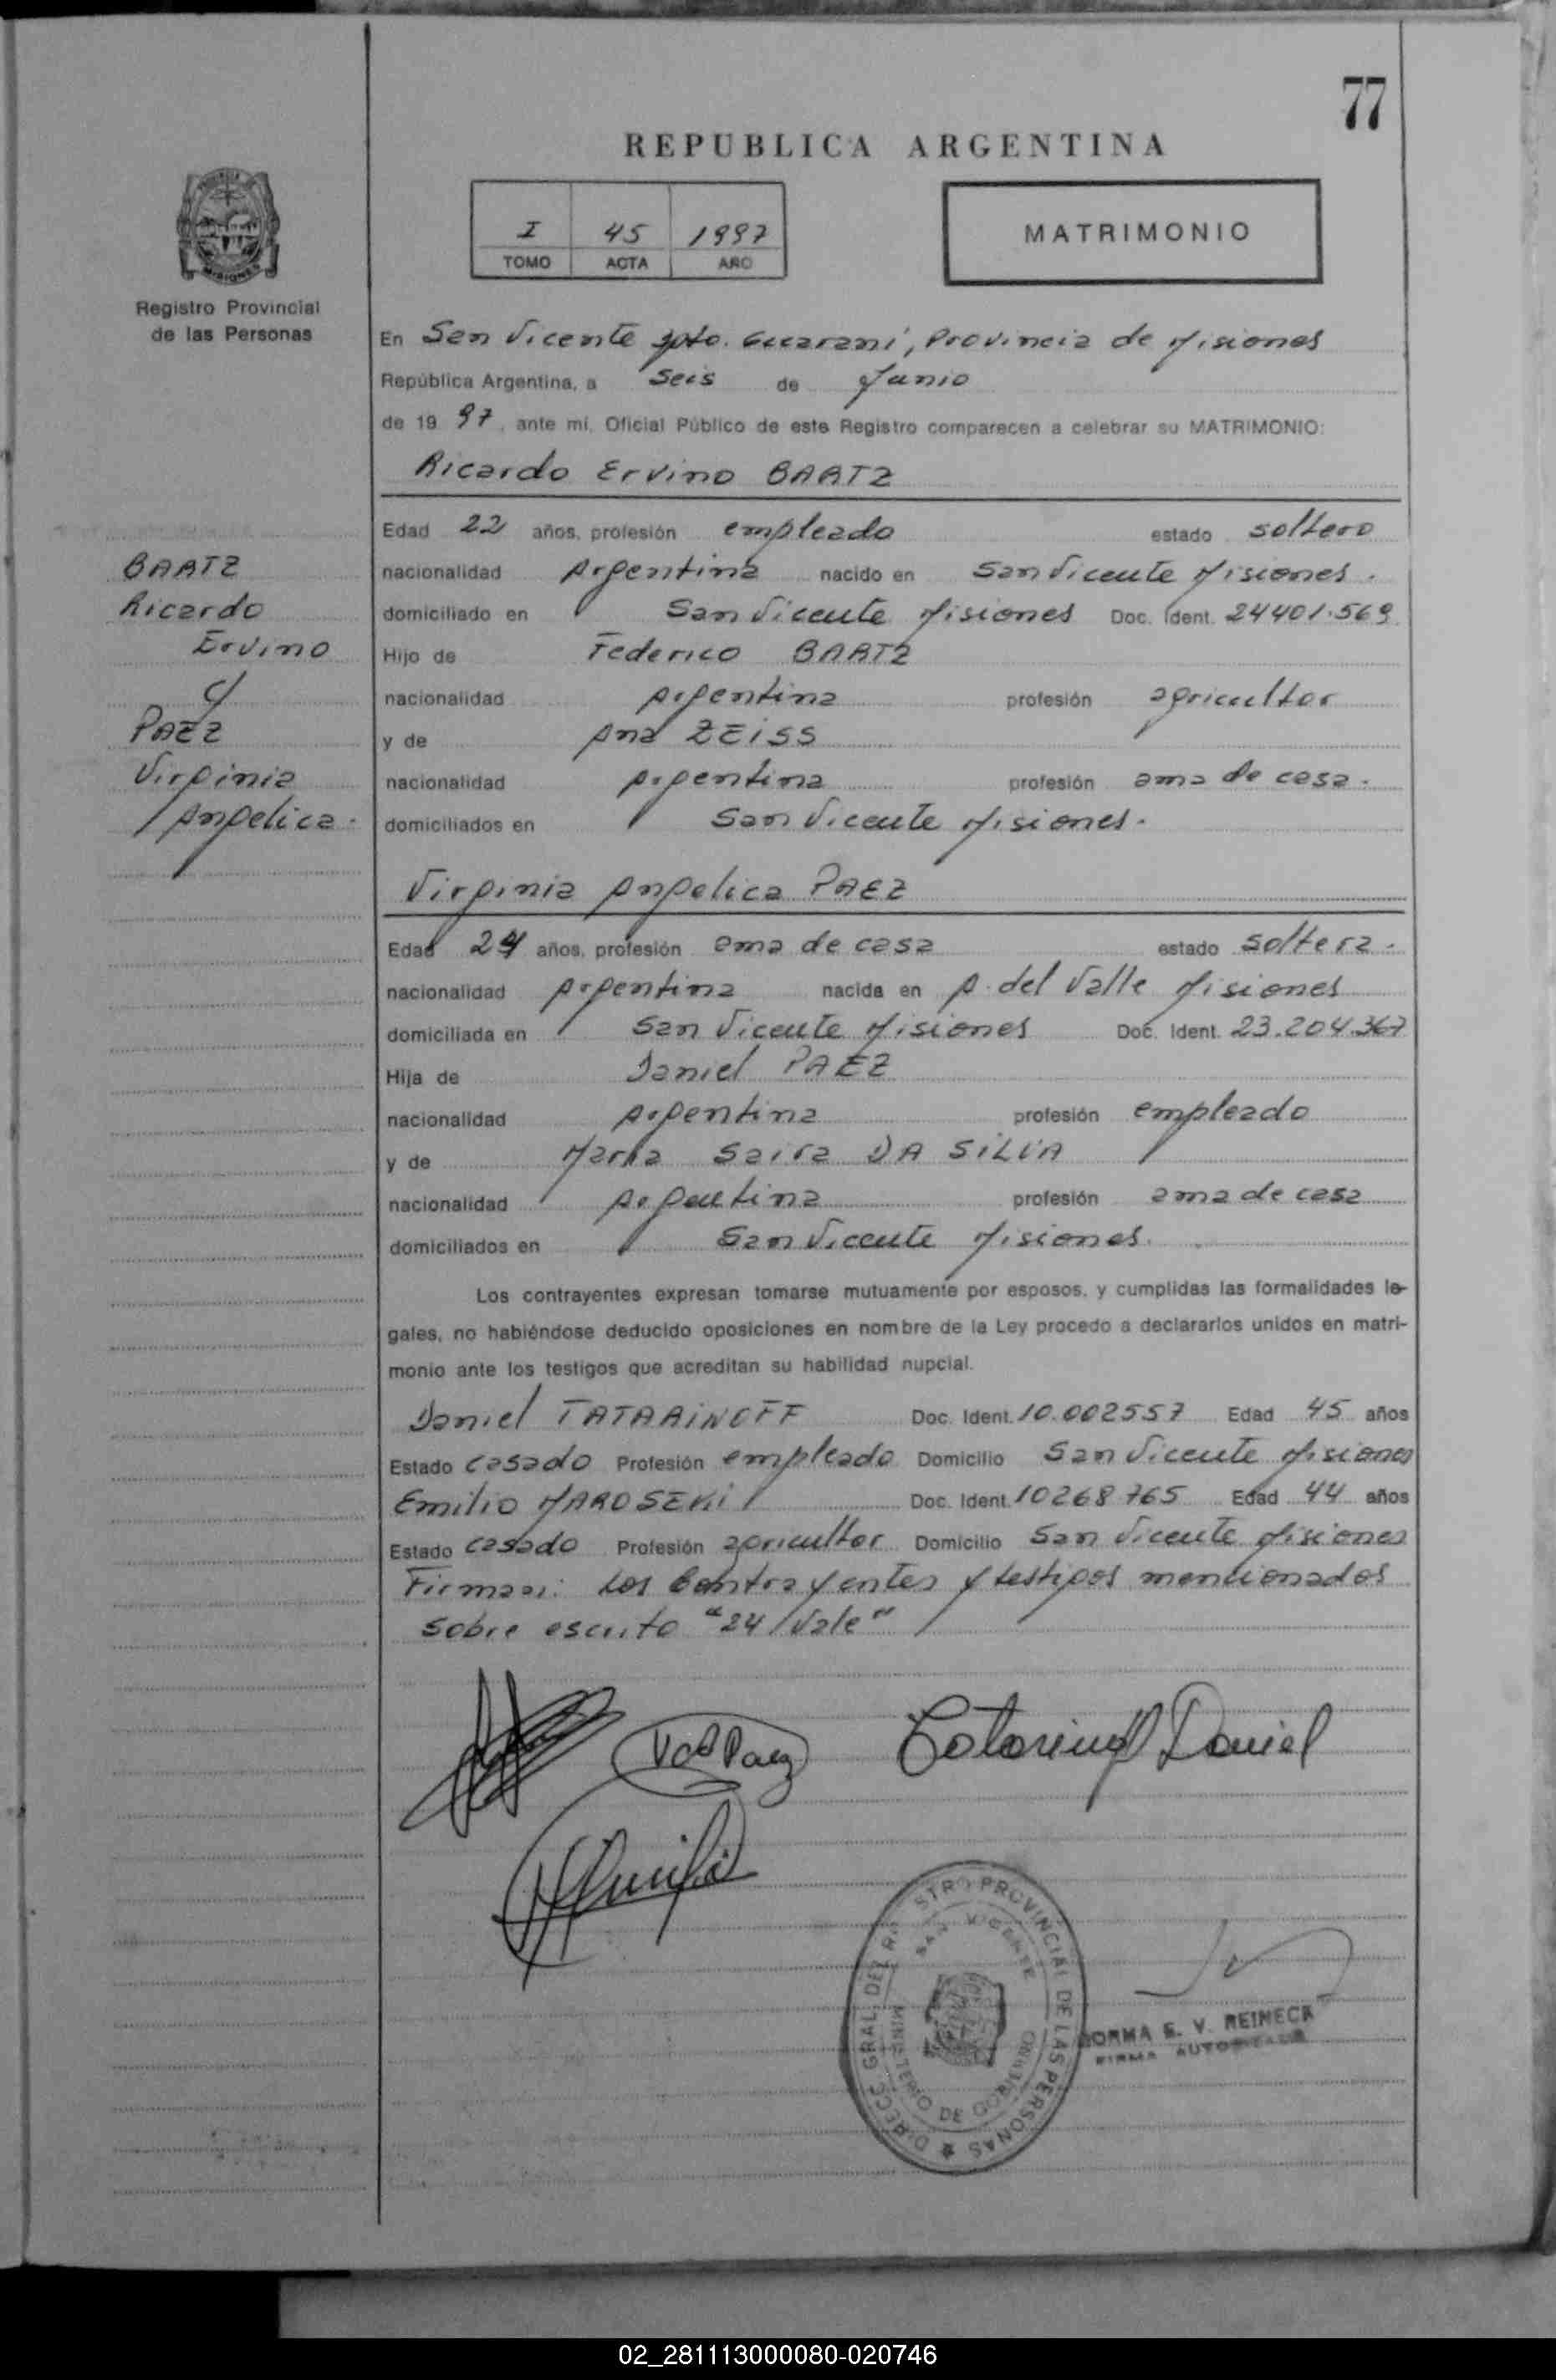 77
REPUBLICA ARGENTINA
I 45 1997
TOMO ACTA AÑO
MATRIMONIO
Registro Provincial
de las Personas
En San Vicente Dpto. Guarani, Provincia de Misiones
República Argentina, a Seis de Junio
de 19 97, ante mí, Oficial Público de este Registro comparecen a celebrar su MATRIMONIO:
Ricardo Ervino BAATZ
Edad 22 años, profesión empleado estado soltero
nacionalidad Argentina nacido en San Vicente Misiones.
domiciliado en San Vicente Misiones Doc. Ident. 24401.569
Hijo de Federico BAATZ
nacionalidad Argentina profesión agricultor
y de Ana ZEISS
nacionalidad Argentina profesión ama de casa.
domiciliados en San Vicente Misiones.
BAATZ
Ricardo
Ervino
c/
PAEZ
Virginia
Angelica.
Virginia Angelica PAEZ
Edad 24 años, profesión ama de casa estado soltera.
nacionalidad Argentina nacida en A. del Valle Misiones
domiciliada en San Vicente Misiones Doc. Ident. 23.204.367
Hija de Daniel PAEZ
nacionalidad Argentina profesión empleado
y de Maria Saira DA SILVA
nacionalidad Argentina profesión ama de casa
domiciliados en San Vicente Misiones.
Los contrayentes expresan tomarse mutuamente por esposos, y cumplidas las formalidades le-
gales, no habiéndose deducido oposiciones en nombre de la Ley procedo a declararlos unidos en matri-
monio ante los testigos que acreditan su habilidad nupcial.
Daniel TATARINOFF Doc. Ident. 10.002557 Edad 45 años
Estado casado Profesión empleado Domicilio San Vicente Misiones
Emilio MAROSEKI Doc. Ident. 10268765 Edad 44 años
Estado casado Profesión agricultor Domicilio San Vicente Misiones
Firman: Los Contrayentes y testigos mencionados
sobre escrito "24/Vale"
Paez
Tatarinoff Daniel
DIRECC. GRAL. DEL REGISTRO PROVINCIAL DE LAS PERSONAS
SAN VICENTE
MINISTERIO DE GOBIERNO
NORMA E. V. REINECK
FIRMA AUTORIZADA
02_281113000080-020746